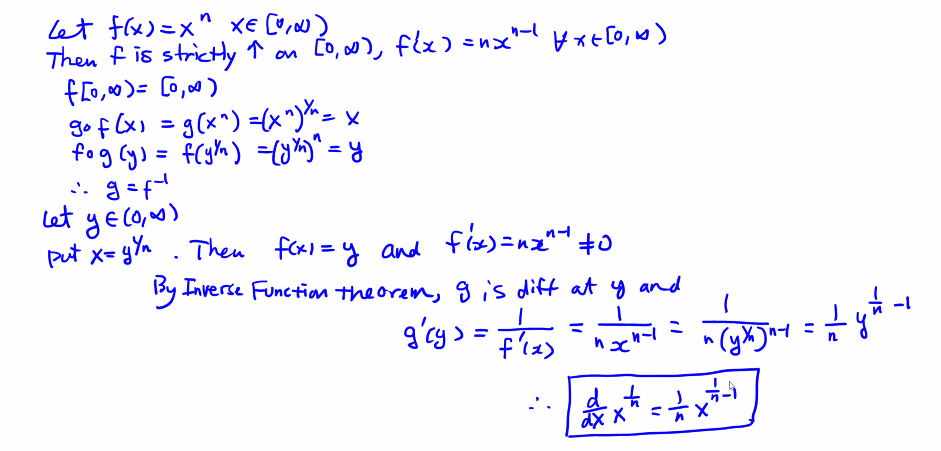 Let f(x) = xⁿ x ∈ [0, ∞)
Then f is strictly ↑ on [0, ∞), f'(x) = nxⁿ⁻¹ ∀ x ∈ [0, ∞)
f[0, ∞) = [0, ∞)
g∘f(x) = g(xⁿ) = (xⁿ)^{1/n} = x
f∘g(y) = f(y^{1/n}) = (y^{1/n})ⁿ = y
∴ g = f⁻¹
Let y ∈ (0, ∞)
put x = y^{1/n}. Then f(x) = y and f'(x) = nxⁿ⁻¹ ≠ 0
By Inverse Function theorem, g is diff at y and
g'(y) = 1/f'(x) = 1/(nxⁿ⁻¹) = 1/(n(y^{1/n})ⁿ⁻¹) = 1/n y^{1/n - 1}
∴ d/dx x^{1/n} = 1/n x^{1/n - 1}